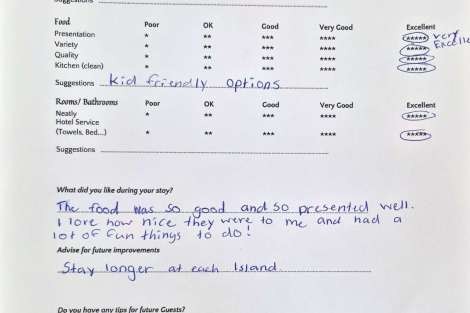 Suggestions
Food Poor OK Good Very Good Excellent
Presentation * ** *** **** ***** very
Variety * ** *** **** ***** Excelle
Quality * ** *** **** *****
Kitchen (clean) * ** *** **** *****
Suggestions Kid friendly options
Rooms/Bathrooms Poor OK Good Very Good Excellent
Neatly * ** *** **** *****
Hotel Service
(Towels, Bed...) * ** *** **** *****
Suggestions
What did you like during your stay?
The food was so good and so presented well.
I love how nice they were to me and had a
lot of fun things to do!
Advise for future improvements
Stay longer at each Island.
Do you have any tips for future Guests?